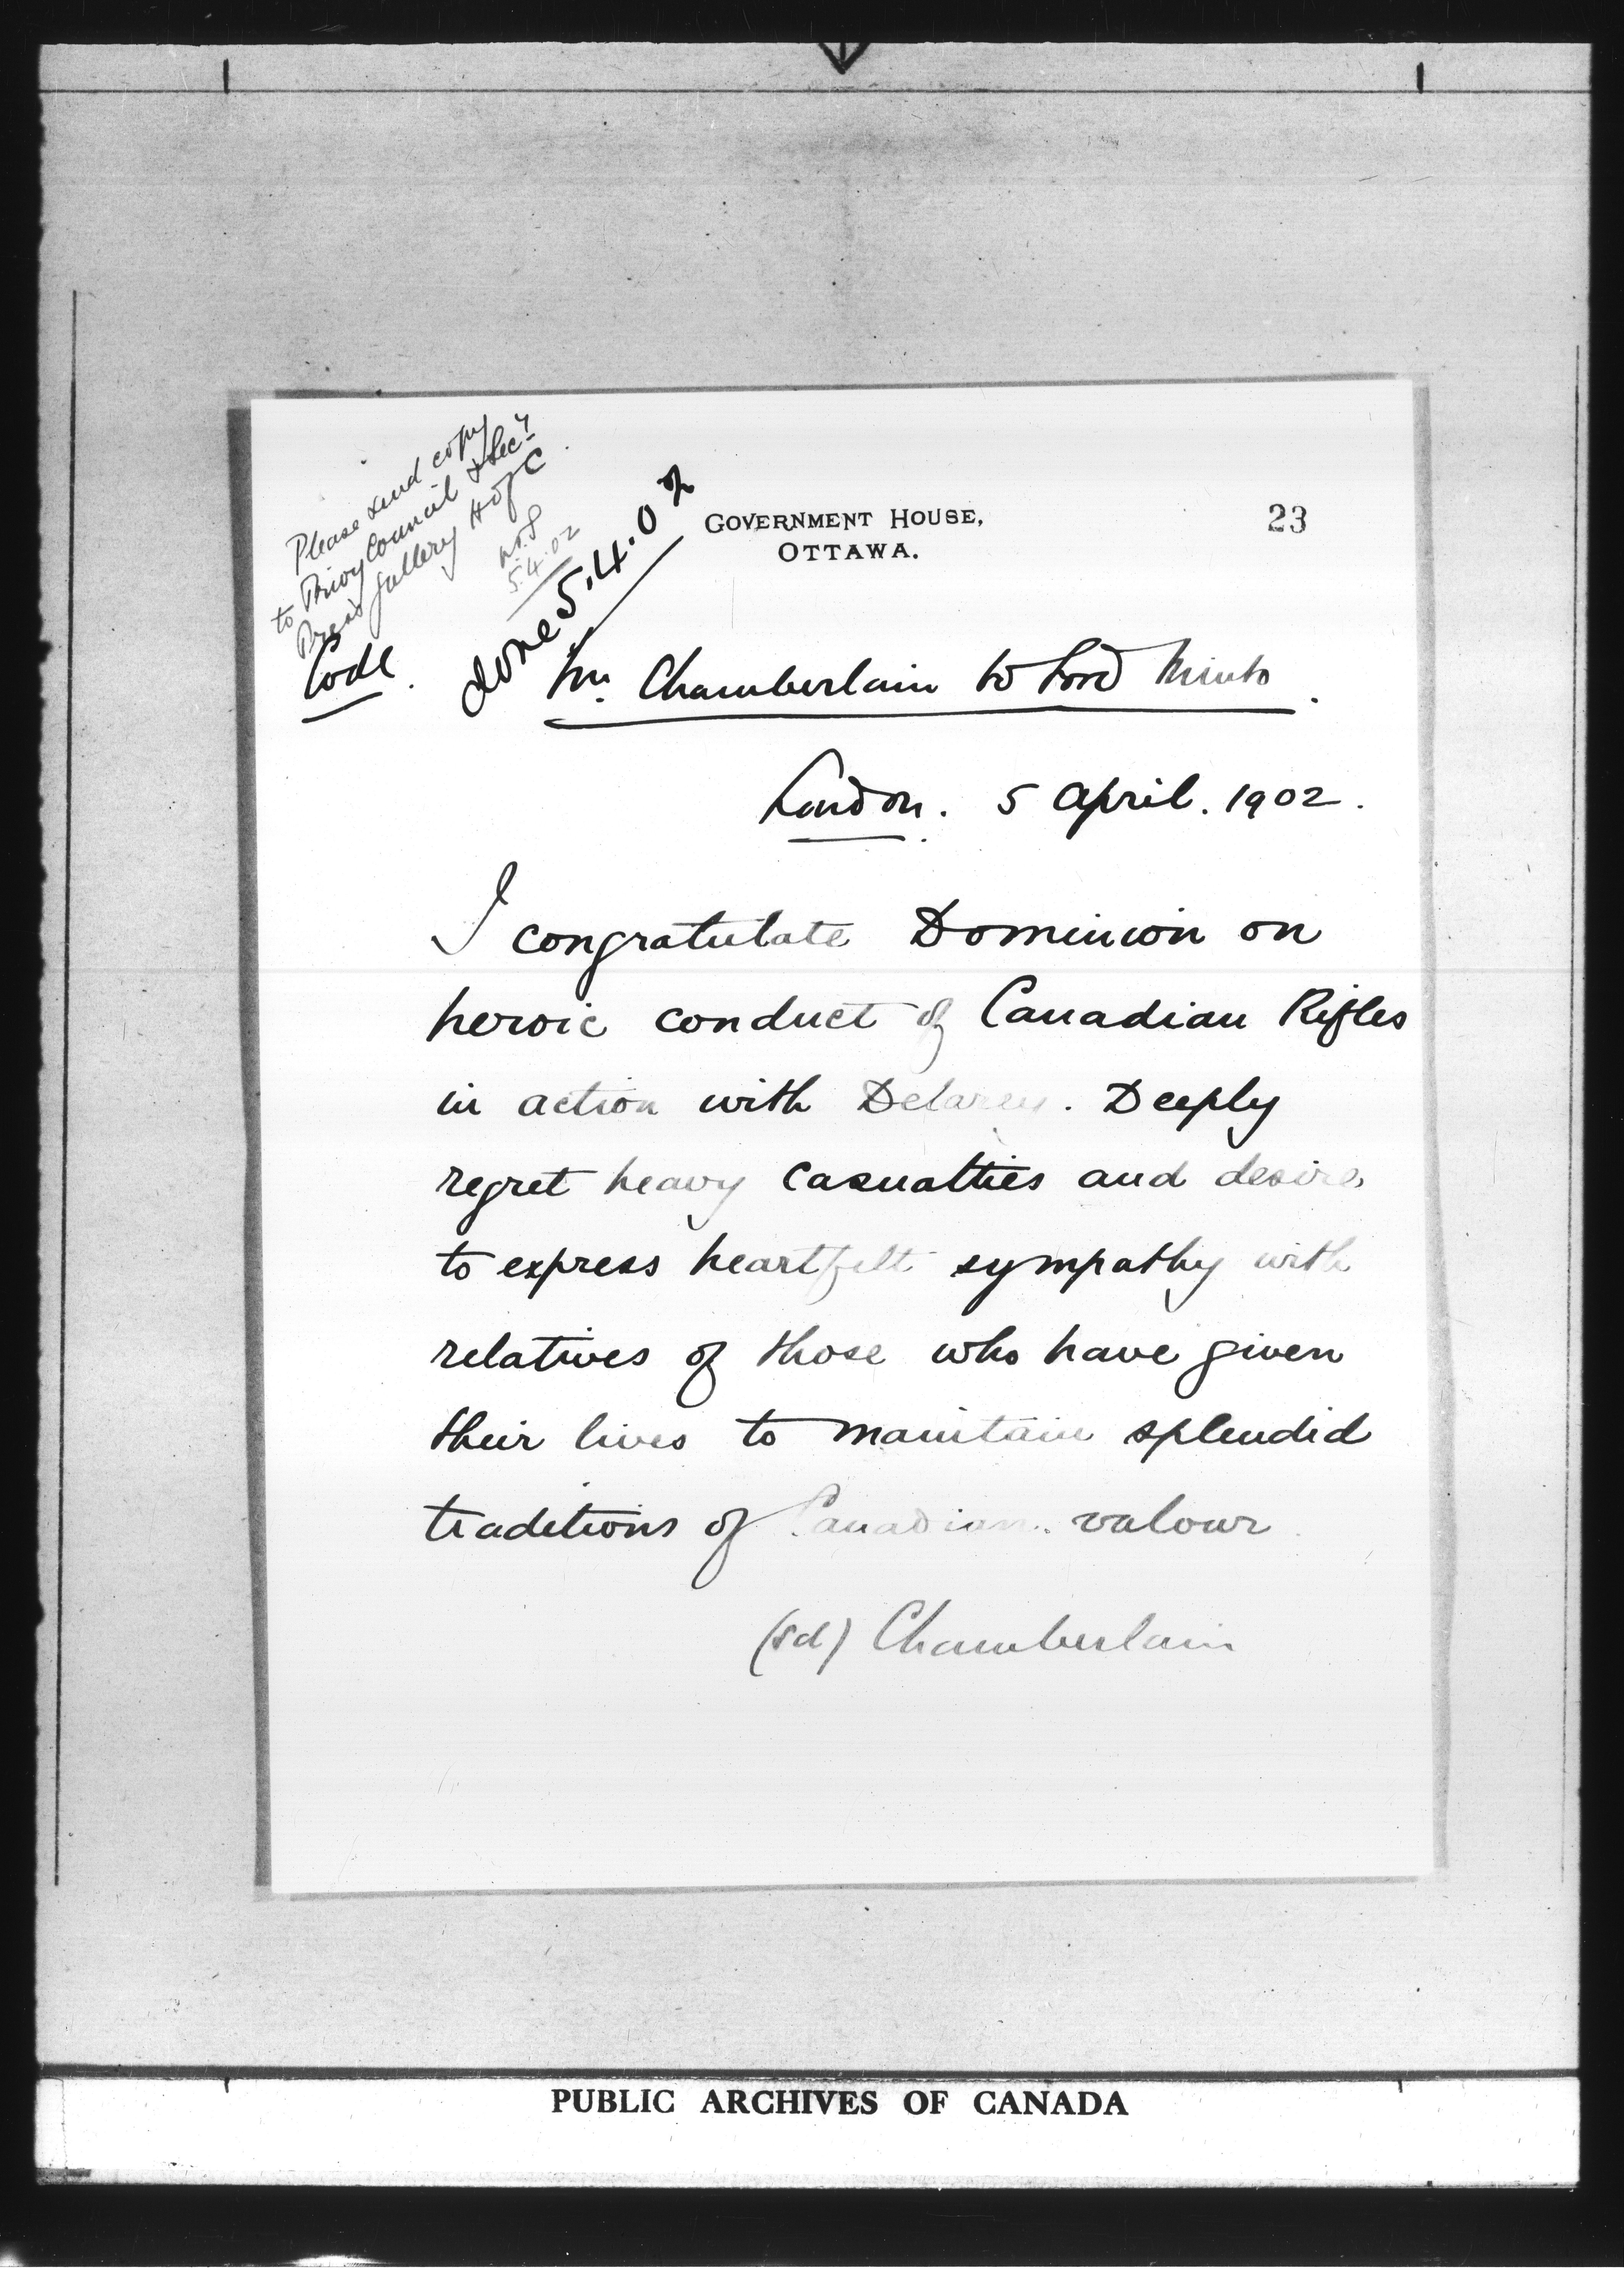 Please send copy
to Privy Council & Secy
Press Gallery H of C
5.4.02
Code.
done 5.4.02
GOVERNMENT HOUSE,
OTTAWA.
23
Mr. Chamberlain to Lord Minto.
London. 5 April. 1902.
I congratulate Dominion on
heroic conduct of Canadian Rifles
in action with Delarey. Deeply
regret heavy casualties and desire
to express heartfelt sympathy with
relatives of those who have given
their lives to maintain splendid
traditions of Canadian valour.
(sd) Chamberlain
PUBLIC ARCHIVES OF CANADA